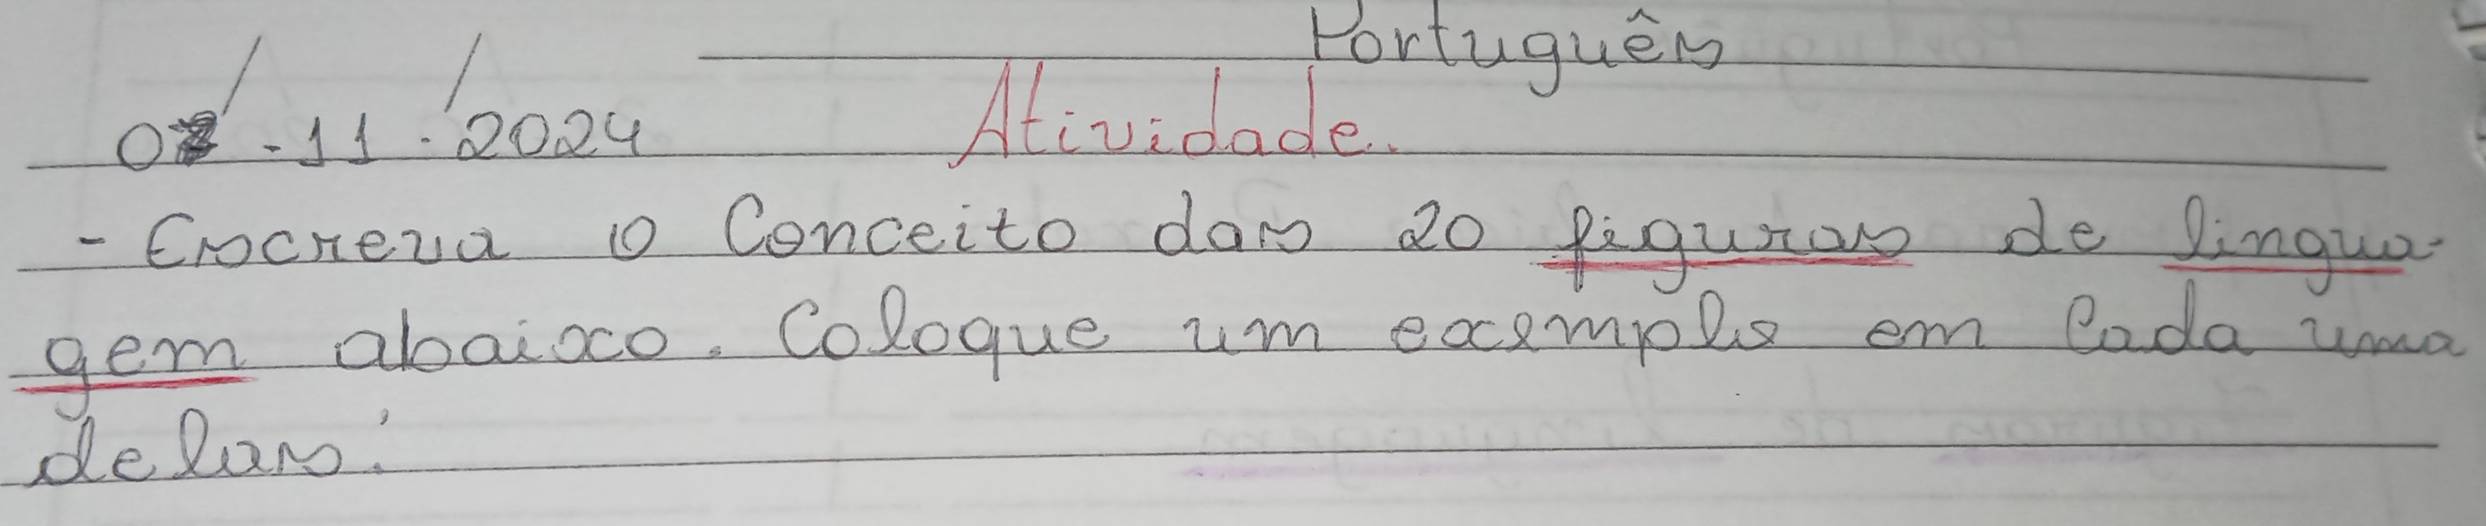 Português
0 / 11 / 2024 Atividade.
- Escreva o Conceito das 20 figuras de lingua-
gem abaixo. Coloque um exemplo em Cada uma
delas: